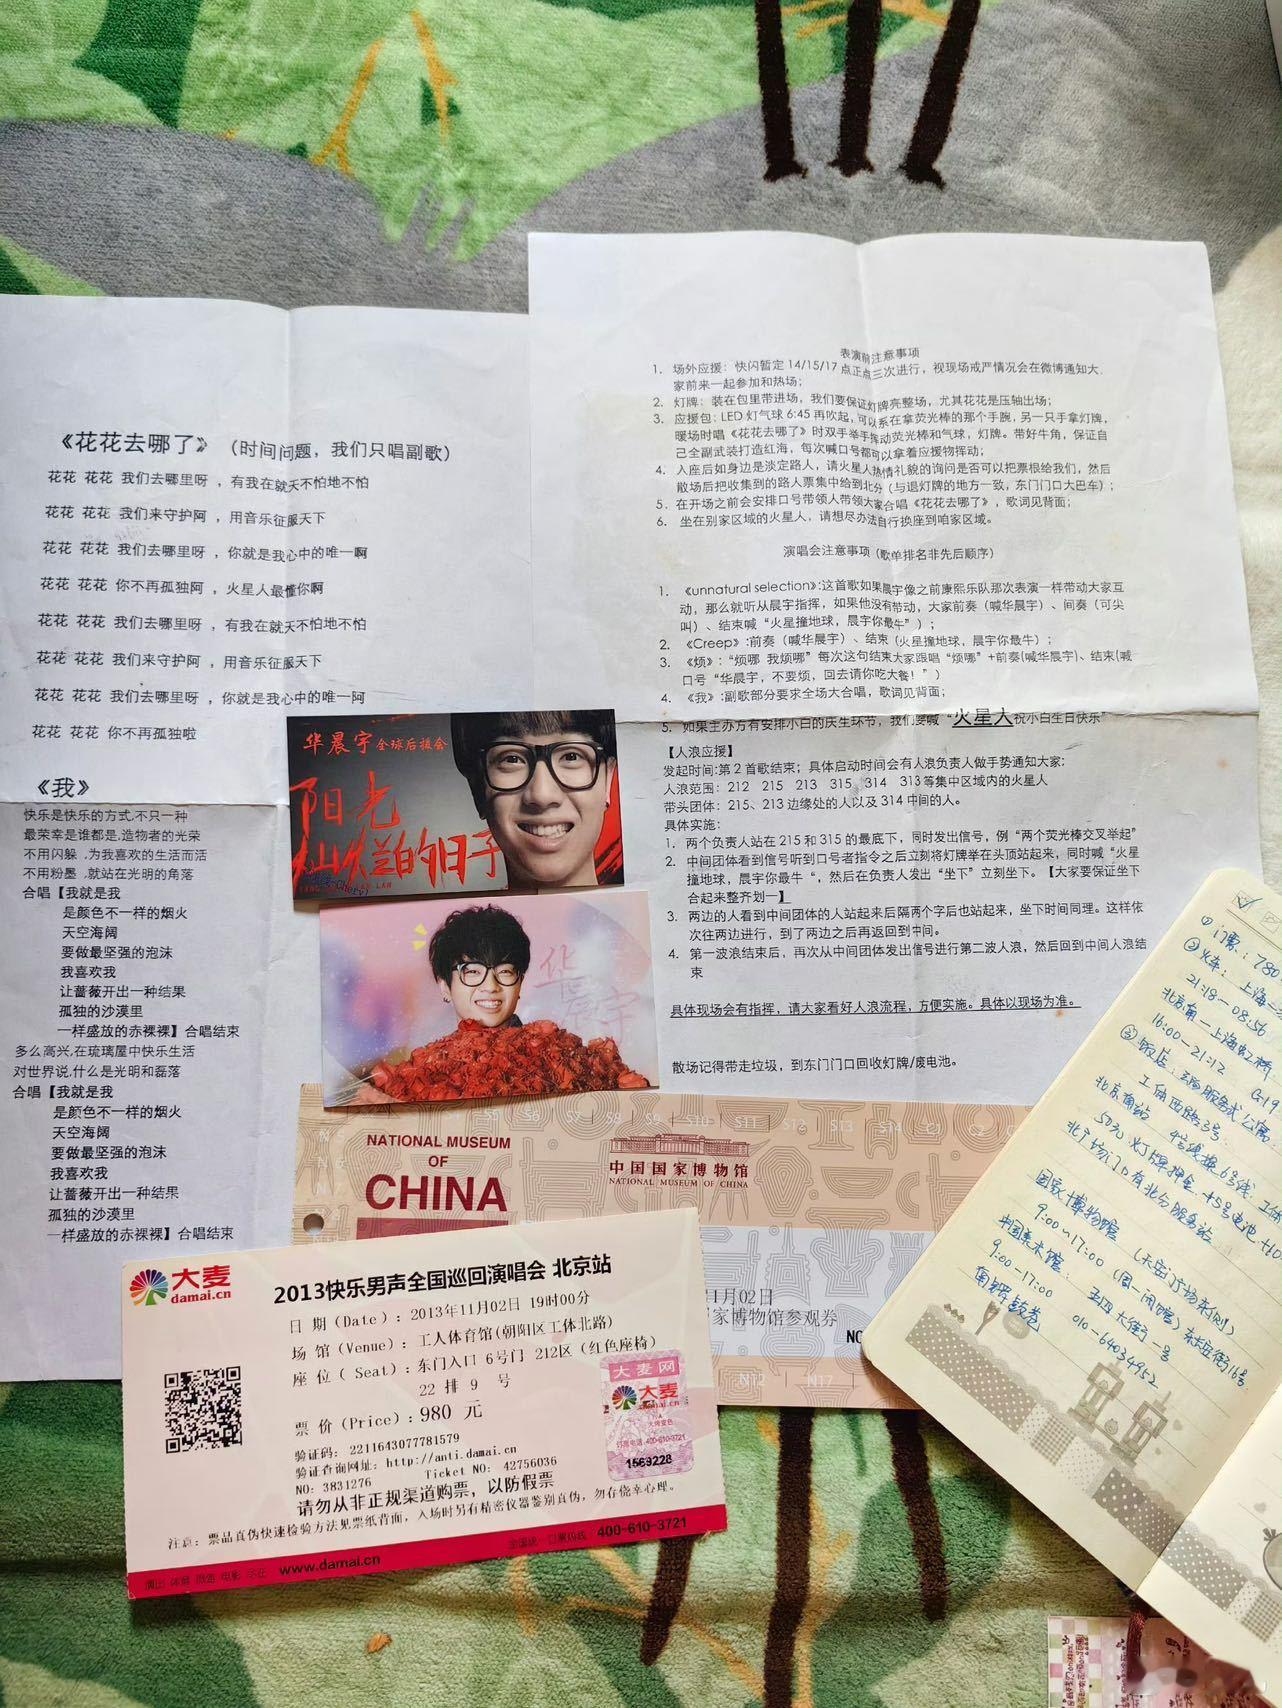 《花花去哪了》（时间问题，我们只唱副歌）
花花 花花 我们去哪里呀，有我在就天不怕地不怕
花花 花花 我们来守护阿，用音乐征服天下
花花 花花 我们去哪里呀，你就是我心中的唯一啊
花花 花花 你不再孤独阿，火星人最懂你啊
花花 花花 我们去哪里呀，有我在就天不怕地不怕
花花 花花 我们来守护阿，用音乐征服天下
花花 花花 我们去哪里呀，你就是我心中的唯一阿
花花 花花 你不再孤独啦
《我》
快乐是快乐的方式,不只一种
最荣幸是谁都是,造物者的光荣
不用闪躲 ,为我喜欢的生活而活
不用粉墨 ,就站在光明的角落
合唱【我就是我
是颜色不一样的烟火
天空海阔
要做最坚强的泡沫
我喜欢我
让蔷薇开出一种结果
孤独的沙漠里
一样盛放的赤裸裸】合唱结束
多么高兴,在琉璃屋中快乐生活
对世界说,什么是光明和磊落
合唱【我就是我
是颜色不一样的烟火
天空海阔
要做最坚强的泡沫
我喜欢我
让蔷薇开出一种结果
孤独的沙漠里
一样盛放的赤裸裸】合唱结束
表演前注意事项
1. 场外应援：快闪暂定 14/15/17 点正点三次进行，视现场戒严情况会在微博通知大
家前来一起参加和热场；
2. 灯牌：装在包里带进场，我们要保证灯牌亮整场，尤其花花是压轴出场；
3. 应援包：LED 灯气球 6:45 再吹起，可以系在拿荧光棒的那个手腕，另一只手拿灯牌，
暖场时唱《花花去哪了》时双手举手挥动荧光棒和气球，灯牌。带好牛角，保证自
己全副武装打造红海，每次喊口号都可以拿着应援物挥动；
4. 入座后如身边是淡定路人，请火星人热情礼貌的询问是否可以把票根给我们，然后
散场后把收集到的路人票集中给到北分（与退灯牌的地方一致，东门门口大巴车）；
5. 在开场之前会安排口号带领人带领大家合唱《花花去哪了》，歌词见背面；
6. 坐在别家区域的火星人，请想尽办法自行换座到咱家区域。
演唱会注意事项（歌单排名非先后顺序）
1. 《unnatural selection》:这首歌如果晨宇像之前康熙乐队那次表演一样带动大家互
动，那么就听从晨宇指挥，如果他没有带动，大家前奏（喊华晨宇）、间奏（可尖
叫）、结束喊“火星撞地球，晨宇你最牛”）；
2. 《Creep》:前奏（喊华晨宇）、结束（火星撞地球，晨宇你最牛）；
3. 《烦》：“烦哪 我烦哪”每次这句结束大家跟唱“烦哪”+前奏(喊华晨宇)、结束(喊
口号“华晨宇，不要烦，回去请你吃大餐！”）
4. 《我》:副歌部分要求全场大合唱，歌词见背面；
5. 如果主办方有安排小白的庆生环节，我们要喊“火星人祝小白生日快乐”
【人浪应援】
发起时间:第 2 首歌结束；具体启动时间会有人浪负责人做手势通知大家；
人浪范围：212 215 213 315 314 313 等集中区域内的火星人
带头团体：215、213 边缘处的人以及 314 中间的人。
具体实施：
1. 两个负责人站在 215 和 315 的最底下，同时发出信号，例“两个荧光棒交叉举起”
2. 中间团体看到信号听到口号者指令之后立刻将灯牌举在头顶站起来，同时喊“火星
撞地球，晨宇你最牛“，然后在负责人发出“坐下”立刻坐下。【大家要保证坐下
合起来整齐划一】
3. 两边的人看到中间团体的人站起来后隔两个字后也站起来，坐下时间同理。这样依
次往两边进行，到了两边之后再返回到中间。
4. 第一波浪结束后，再次从中间团体发出信号进行第二波人浪，然后回到中间人浪结
束
具体现场会有指挥，请大家看好人浪流程，方便实施。具体以现场为准。
散场记得带走垃圾，到东门门口回收灯牌/废电池。
华晨宇全球后援会
阳光
灿烂的日子
华晨宇
N5 S5 S6 S7 S8 S9 S10 S11 S12 S13 S14 C1 C2
NATIONAL MUSEUM
OF
CHINA
中国国家博物馆
NATIONAL MUSEUM OF CHINA
1月02日
家博物馆参观券
NO
N12 N17
大麦
damai.cn
2013快乐男声全国巡回演唱会 北京站
日 期（Date）：2013年11月02日 19时00分
场 馆（Venue）：工人体育馆(朝阳区工体北路)
座 位（ Seat）：东门入口 6号门 212区（红色座椅）
22 排 9 号
票 价（Price）：980 元
验证码: 2211643077781579
验证查询网址: http://anti.damai.cn
NO: 3831276 Ticket NO: 42756036
请勿从非正规渠道购票，以防假票
注意：票品真伪快速检验方法见票纸背面，入场时另有精密仪器鉴别真伪，勿存侥幸心理。
大麦网
大麦
damai.cn
订票电话:400-610-3721
1569228
www.damai.cn
全国统一订票热线：400-610-3721
①门票：780
②火车：上海—
21:18—08:56
北京南—上海虹桥
16:00—21:12 G19
工体西路3号
北京南站 4号线换6号线
50元灯牌押金 +5号电池
北广场门口有北分服务站
国家博物馆（天安门广场东侧）
9:00~17:00（周一闭馆）东长安街16号
中国美术馆：五四大街一号
9:00-17:00 010-64034952